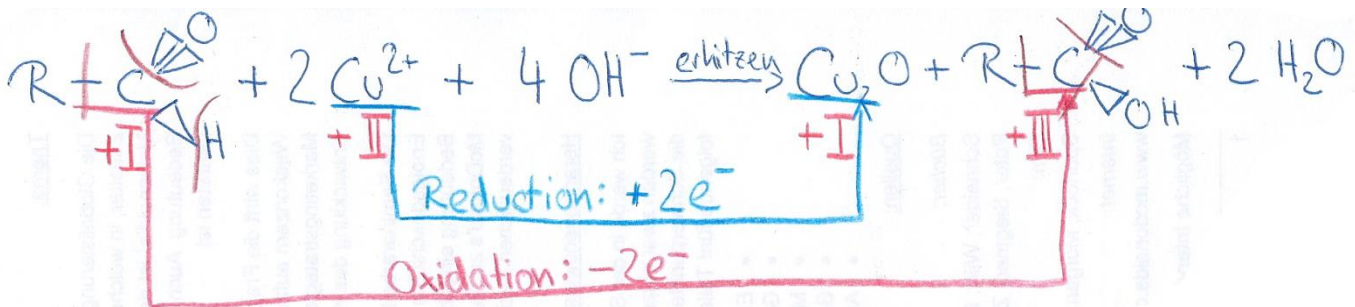 R-C O H + 2 Cu²⁺ + 4 OH⁻ erhitzen → Cu₂O + R-C O OH + 2 H₂O
+I +II +I +III
Reduction: +2e⁻
Oxidation: -2e⁻